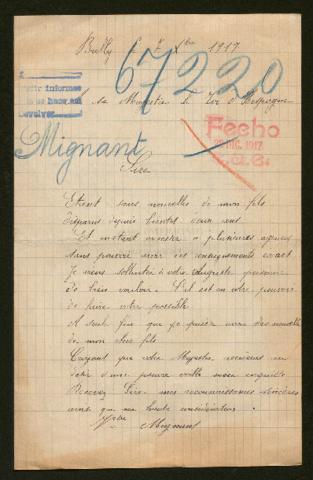 Bully le 7 Xbre 1917
67220
informes
devolver
A sa Majestée le Roi d'Espagne
Fecho
DIC. 1917
Mignant
Sire
Etant sans nouvelles de mon fils
disparus depuis bientot deux ans
Et m'étant adressée a plusieures agences
sans pouvoir avoir des renseignements exact
Je viens solliciter à votre Auguste personne
de bien vouloir. S'il est en votre pouvoir
de faire votre possible
A seule fin que je puisse avoir des nouvelles
de mon cher fils
Croyant que votre Majestée
d'une pauvre veuve
Recevez Sire mes reconnaissances sincères
ainsi que ma haute considération.
Vve Mignant